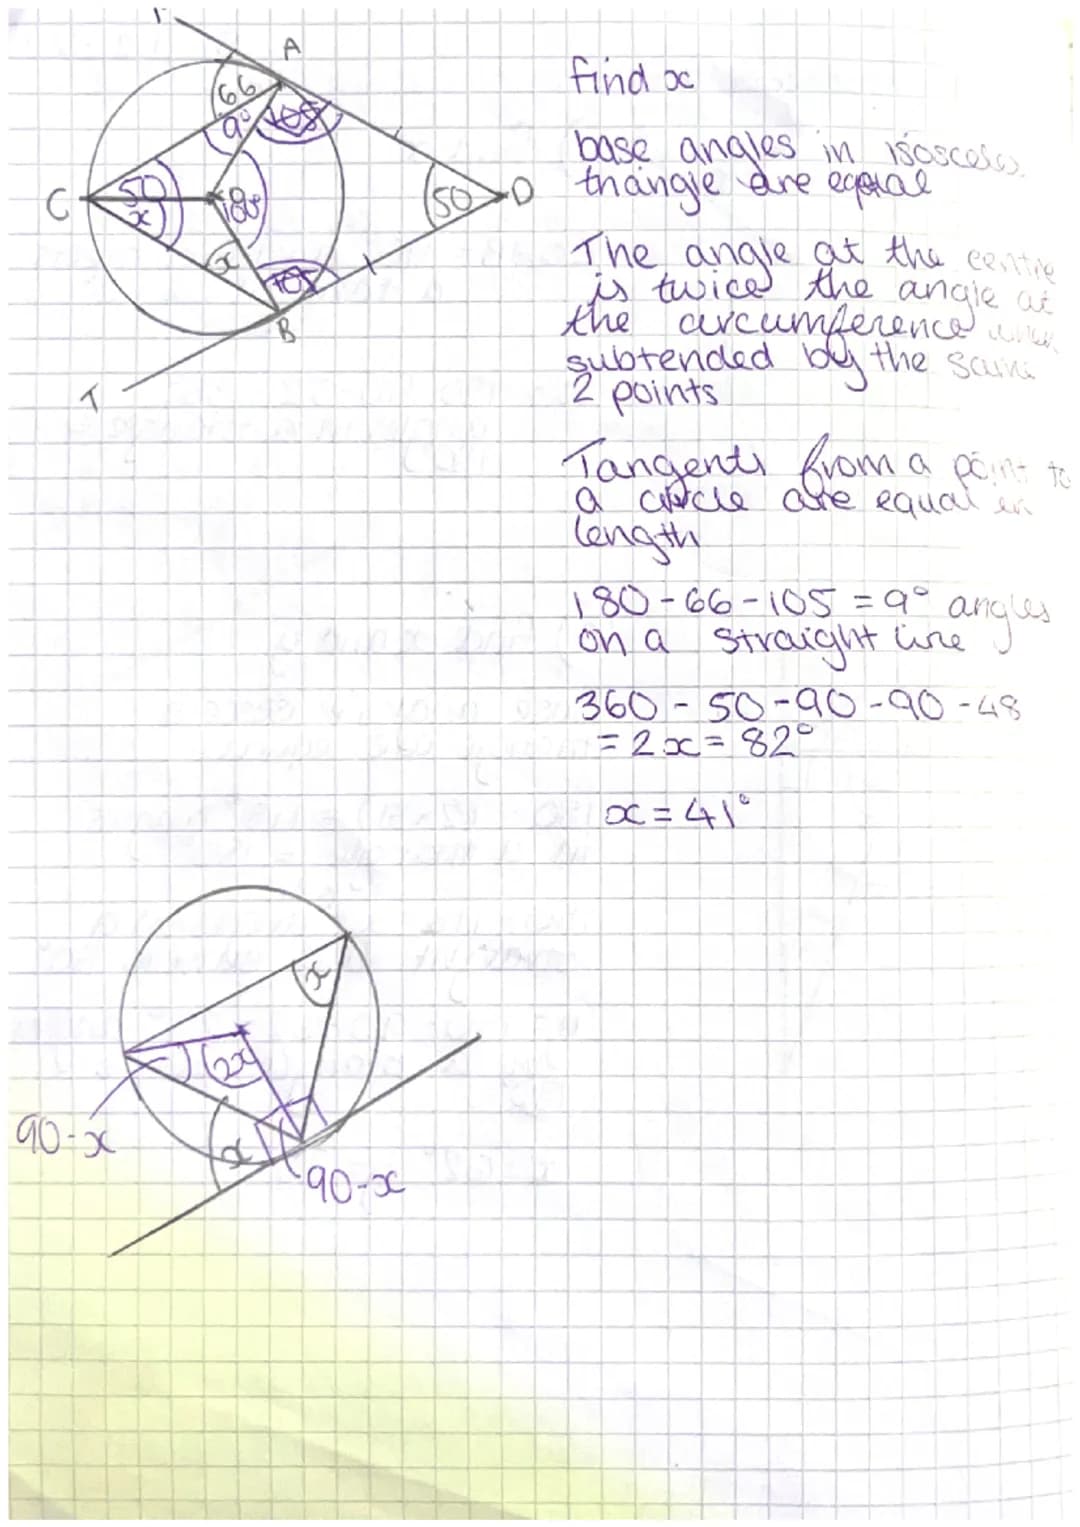 A
66
9°
105
C
50
x
180°
50
D
x
105
B
T
find x
base angles in isosceles
triangle are equal
The angle at the centre
is twice the angle at
the circumference when
subtended by the same
2 points
Tangents from a point to
a circle are equal in
length
180-66-105 = 9° angles
on a straight line
360 - 50-90-90-48
= 2x = 82°
x = 41°
x
2x
90-x
x
90-x